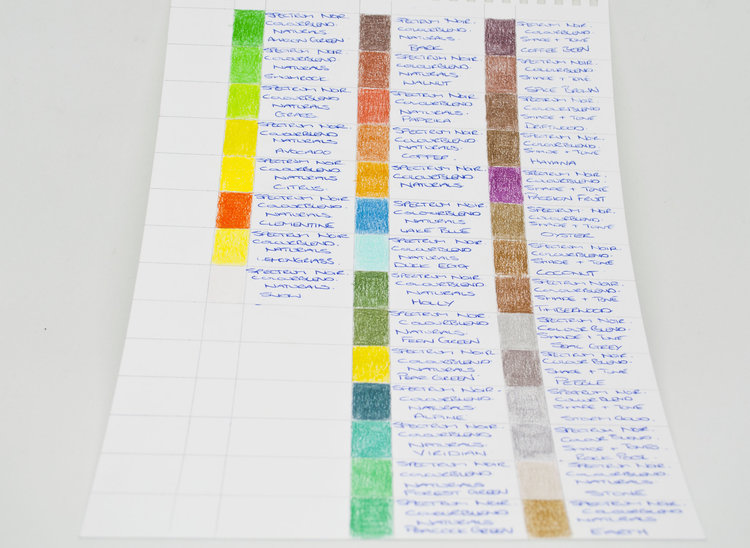 SPECTRUM NOIR
COLOURBLEND.
NATURALS
AVALON GREEN
SPECTRUM NOIR.
COLOURBLEND
NATURALS
SHAMROCK
SPECTRUM NOIR.
COLOURBLEND
NATURALS
GRASS
SPECTRUM NOIR.
COLOURBLEND
NATURALS.
AVOCADO
SPECTRUM NOIR.
COLOURBLEND
NATURALS
CITRUS
SPECTRUM NOIR
COLOURBLEND.
NATURALS
CLEMENTINE
SPECTRUM NOIR.
COLOURBLEND.
NATURALS
LEMONGRASS.
SPECTRUM NOIR.
COLOURBLEND.
NATURALS.
SNOW
SPECTRUM NOIR
COLOURBLEND.
NATURALS
BARK
SPECTRUM NOIR.
COLOURBLEND.
NATURALS
WALNUT
SPECTRUM NOIR
COLOURBLEND
NATURALS.
PAPRIKA
SPECTRUM NOIR
COLOURBLEND
NATURALS.
COFFEE.
SPECTRUM NOIR.
COLOURBLEND
NATURALS
SPECTRUM NOIR
COLOURBLEND
NATURALS
LAKE BLUE
SPECTRUM NOIR
COLOURBLEND
NATURALS
DUCK EGG
SPECTRUM NOIR
COLOURBLEND.
NATURALS
HOLLY
SPECTRUM NOIR
COLOURBLEND.
NATURALS
FERN GREEN
SPECTRUM NOIR
COLOURBLEND
NATURALS
PEAR GREEN
SPECTRUM NOIR.
COLOURBLEND
NATURALS
ALPINE
SPECTRUM NOIR
COLOURBLEND
NATURALS.
VIRIDIAN
SPECTRUM NOIR
COLOURBLEND
NATURALS
FOREST GREEN
SPECTRUM NOIR
COLOURBLEND
NATURALS
PEACOCK GREEN
SPECTRUM NOIR
COLOURBLEND.
SHADE + TONE
COFFEE BEAN
SPECTRUM NOIR
COLOURBLEND.
SHADE + TONE
SPICE BROWN
SPECTRUM NOIR
COLOURBLEND
SHADE + TONE
DRIFTWOOD
SPECTRUM NOIR.
COLOURBLEND
SHADE + TONE
HAVANA
SPECTRUM NOIR
COLOURBLEND.
SHADE + TONE
PASSION FRUIT
SPECTRUM NOIR
COLOURBLEND.
SHADE + TONE
OYSTER
SPECTRUM NOIR.
COLOURBLEND
SHADE + TONE
COCONUT
SPECTRUM NOIR
COLOURBLEND
SHADE + TONE
TIMBERWOOD
SPECTRUM NOIR
COLOURBLEND.
SHADE + TONE
SEAL GREY
SPECTRUM NOIR
COLOURBLEND.
SHADE + TONE
PEBBLE
SPECTRUM NOIR
COLOURBLEND
SHADE + TONE
STORM CLOUD
SPECTRUM NOIR
COLOUR BLEND.
SHADE + TONES
ROCK POOL
SPECTRUM NOIR.
COLOURBLEND
NATURALS
STONE
SPECTRUM NOIR.
COLOURBLEND
NATURALS
EARTH